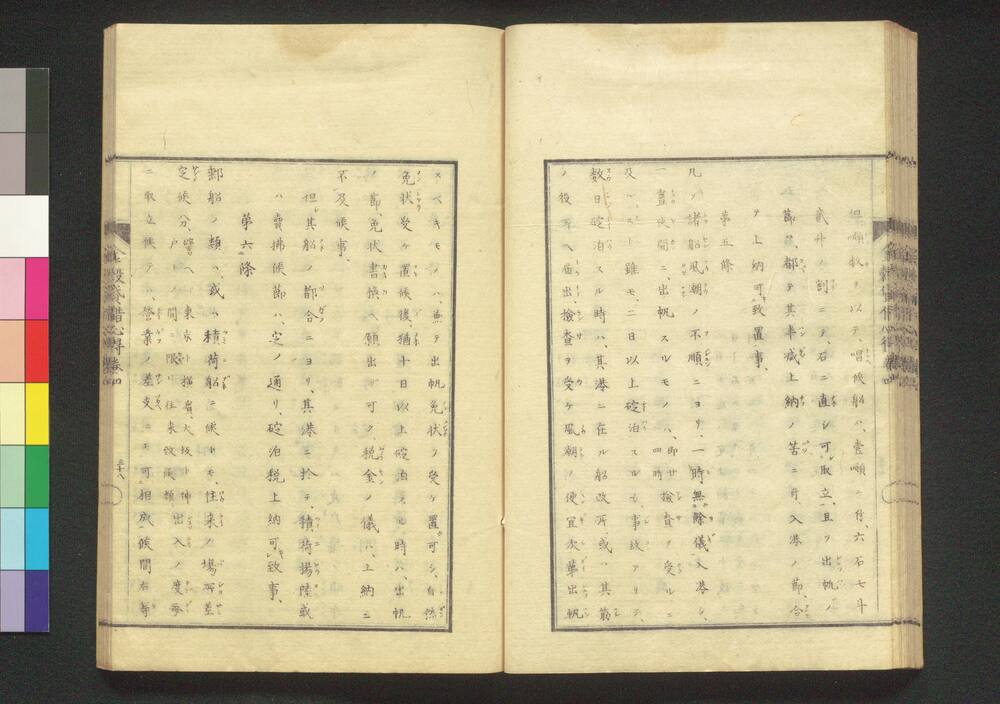 但噸数ヲ以テ、唱候船ハ、壹噸ニ付、六石七斗
貳升ノ割ニテ、石ニ直シ可取立、且ツ出帆ノ
節ハ、都テ其半減上納ノ筈ニ付、入港ノ節、合
ヲ上納可致置事、
第五條
凡ソ諸船風潮ノ不順ニヨリ、一時無餘儀入港シ、
一晝夜間ニ、出帆スルモノハ、即時検査ヲ受ルニ
及ハスト雖モ、二日以上碇泊スルモ事故アリテ、
数日碇泊スル時ハ、其港ニ在ル船改所、或ハ其筋
ノ役所ヘ届出検査ヲ受ケ風潮ノ便宜次第出帆
スベキモノハ、兼テ出帆免状ヲ受ケ置可シ、自然
免状受ケ置候後、猶十日以上碇泊スル時ハ、出帆
ノ節、免状書換ヘ願出可ク、税金ノ儀ハ、上納ニ
不及候事、
但其船ノ都合ニヨリ、其港ニ於テ、積荷揚陸或
ハ賣拂候節ハ、定ノ通リ、碇泊税上納可致事、
第六條
郵船ノ類ハ、或ハ積荷船ニ候トモ、往来ノ場所差
定候分、譬ヘハ東京ト横濱、大坂ト神戸ノ間ニ限リ往来致候類出入ノ度毎
ニ取立候テハ、營業ノ差支ニモ可相成候間右等
三十八